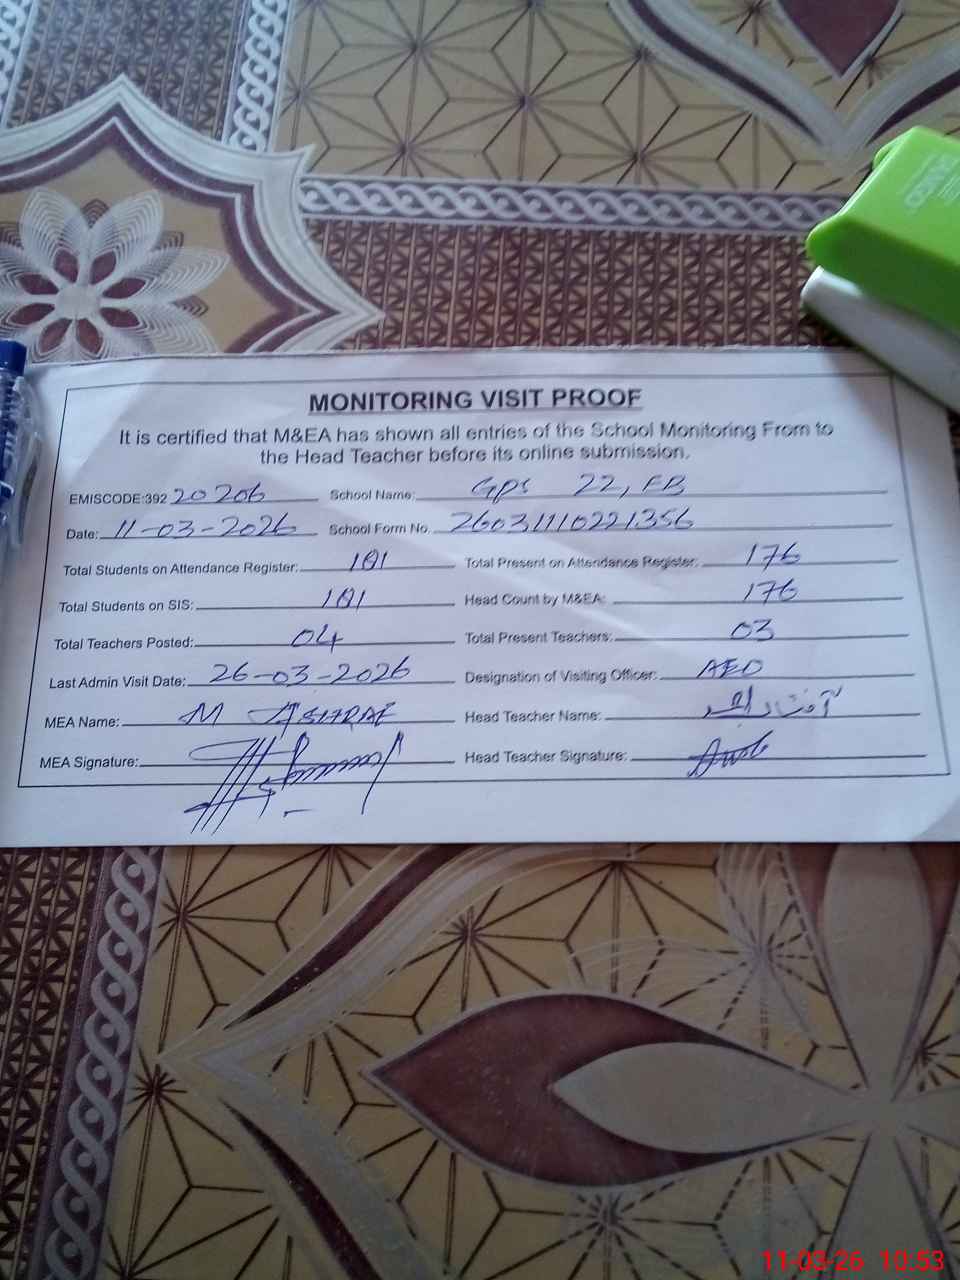 MONITORING VISIT PROOF
It is certified that M&EA has shown all entries of the School Monitoring From to
the Head Teacher before its online submission.
EMISCODE:392 20206 School Name: GPS 22, FB
Date: 11-03-2026 School Form No. 26031110221356
Total Students on Attendance Register: 181 Total Present on Attendance Register: 176
Total Students on SIS: 181 Head Count by M&EA: 176
Total Teachers Posted: 04 Total Present Teachers: 03
Last Admin Visit Date: 26-03-2026 Designation of Visiting Officer: AEO
MEA Name: M ASHRAF Head Teacher Name:
MEA Signature: Head Teacher Signature:
11-03-26 10:53